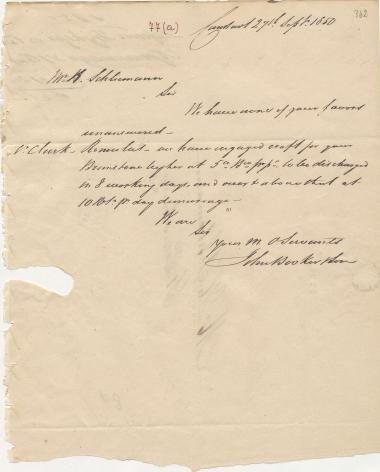 77(a)
362
Cronstadt 27th Septr. 1850
Mr. H. Schliemann
Sir
We have none of your favors
unanswered -
pr. Clerk - Romulus - we have engaged craft for your
Brimstone lighter at 5 to be discharged
in 8 working days, and near & above that at
10 Rbl. pr. day demurrage -
We are
Sir
Your M. O Servants
John Booker & Son